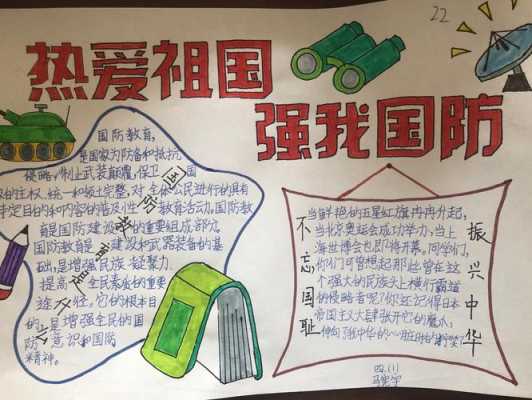 22
热爱祖国
强我国防
国防教育,
是国家为防备和抵抗
侵略,制止武装颠覆,保卫国
的主权、统一和领土完整,对全体公民进行的具有
特定目的和内容的普及性教育活动。国防教
育是国防建设的重要组成部分。
国防教育是建设和武器装备的基
础,是增强民族凝聚力
提高全民素看的重要
途径。它的根本目
的是增强全民的国
防意识和国防
精神。
国防教育
之
不忘国耻
当鲜艳的五星红旗冉冉升起,
当北京奥运会成功举办,当上
海世博会也即将开幕,同学们,
你们可曾想起那些曾在这
个强大的民族头上横行霸道
的侵略者呢?你还记得日本
帝国主义大肆张开它的魔爪,
伸向我中华的心脏时的
振兴中华
四.(1)